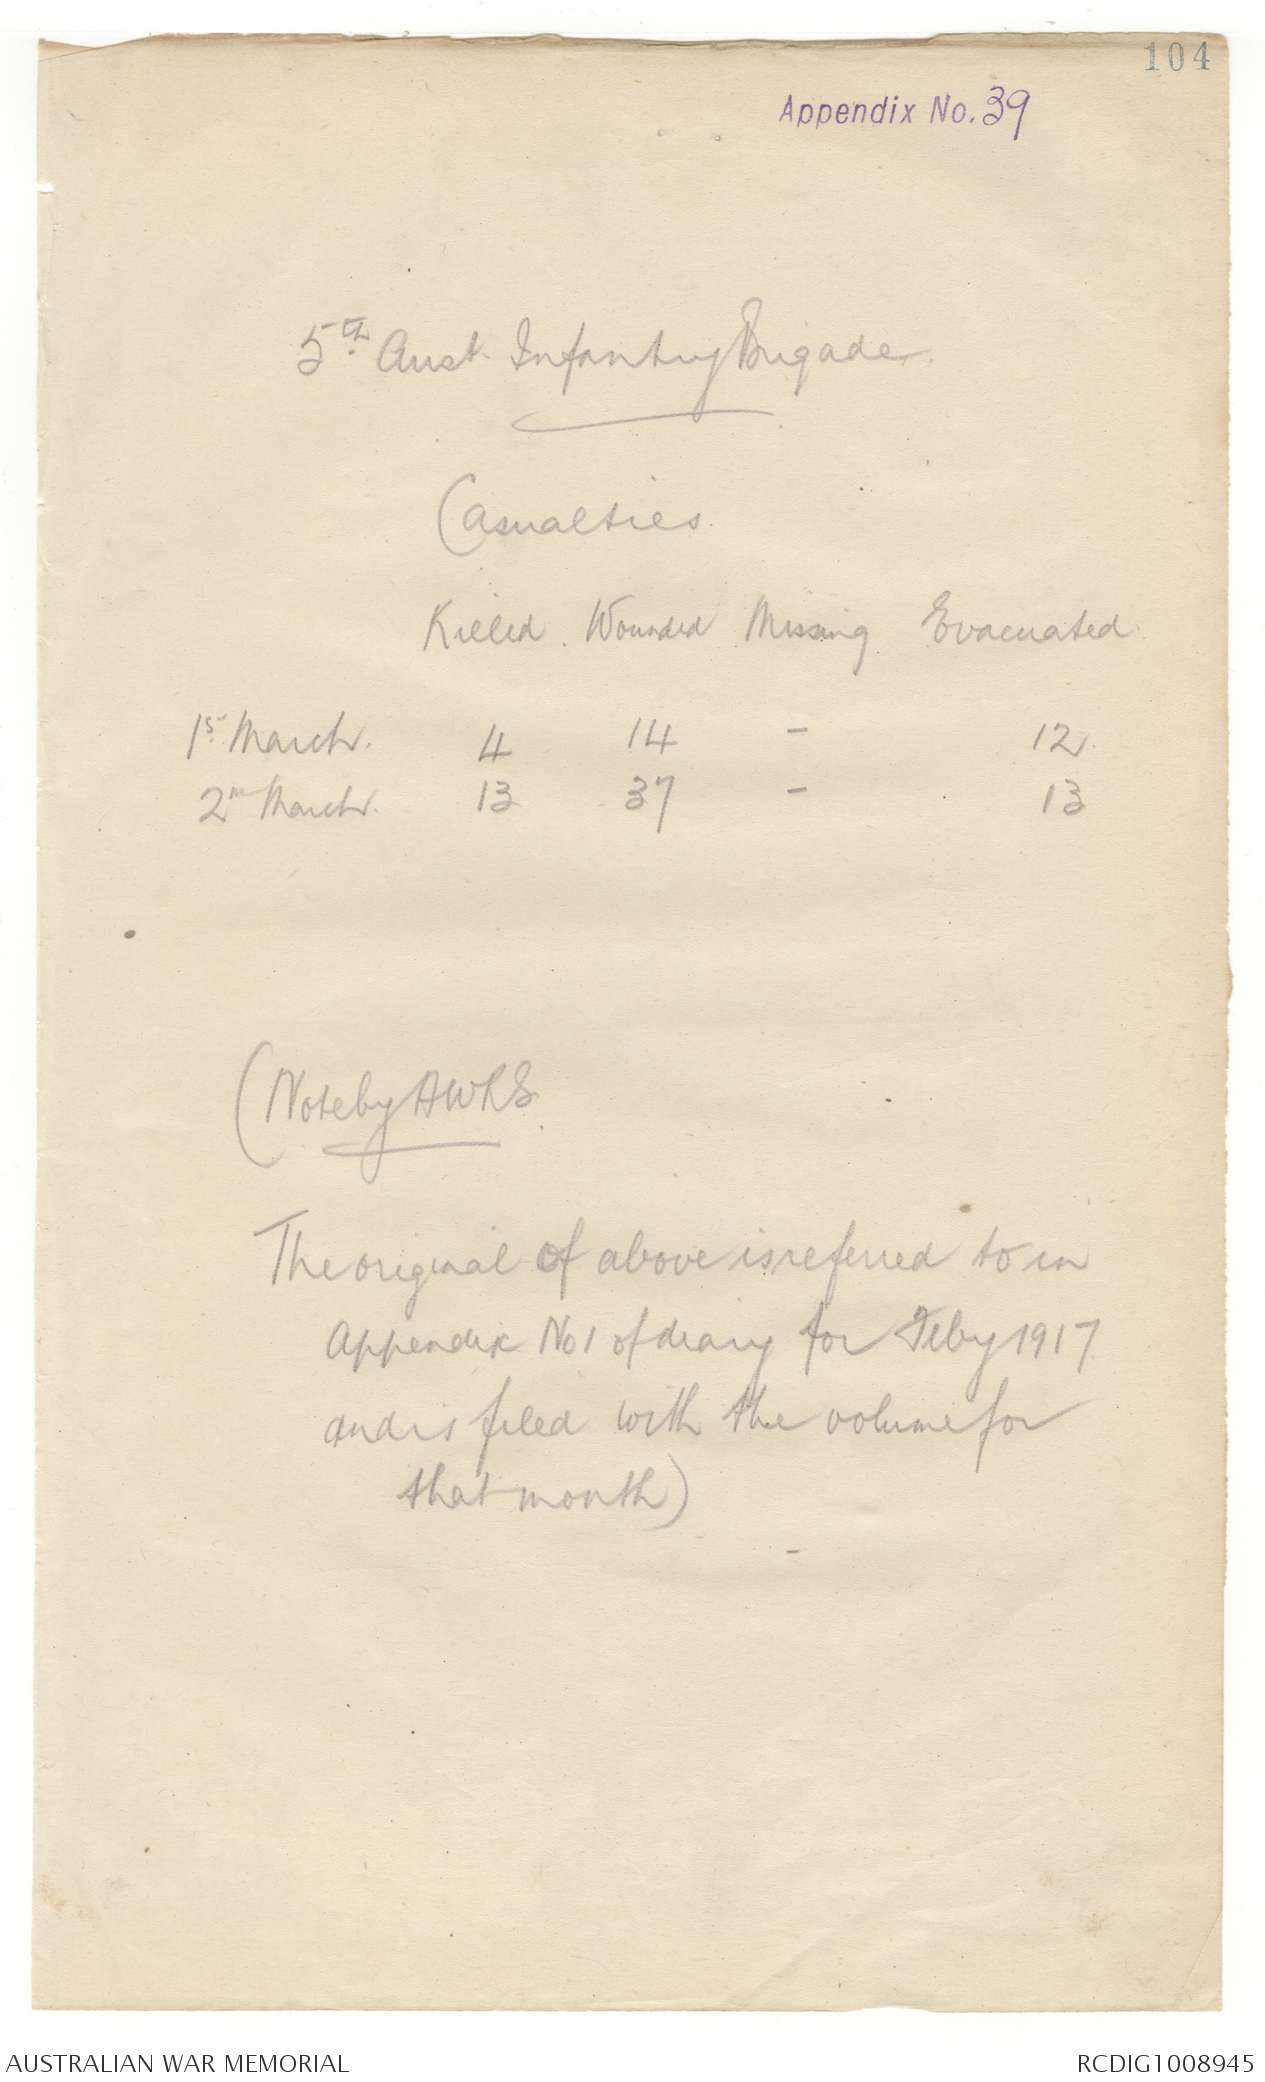 104
Appendix No. 39
5th Aust. Infantry Brigade.
Casualties.
Killed. Wounded Missing Evacuated
1st March. 4 14 - 12.
2nd March. 13 37 - 13
(Note by AWRS.
The original of above is referred to in
Appendix No 1 of diary for Feby 1917
and is filed with the volume for
that month)
AUSTRALIAN WAR MEMORIAL
RCDIG1008945